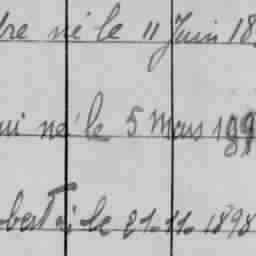 né le 11 Juin 18
né le 5 Mars 1891
bert né le 21.11.1898